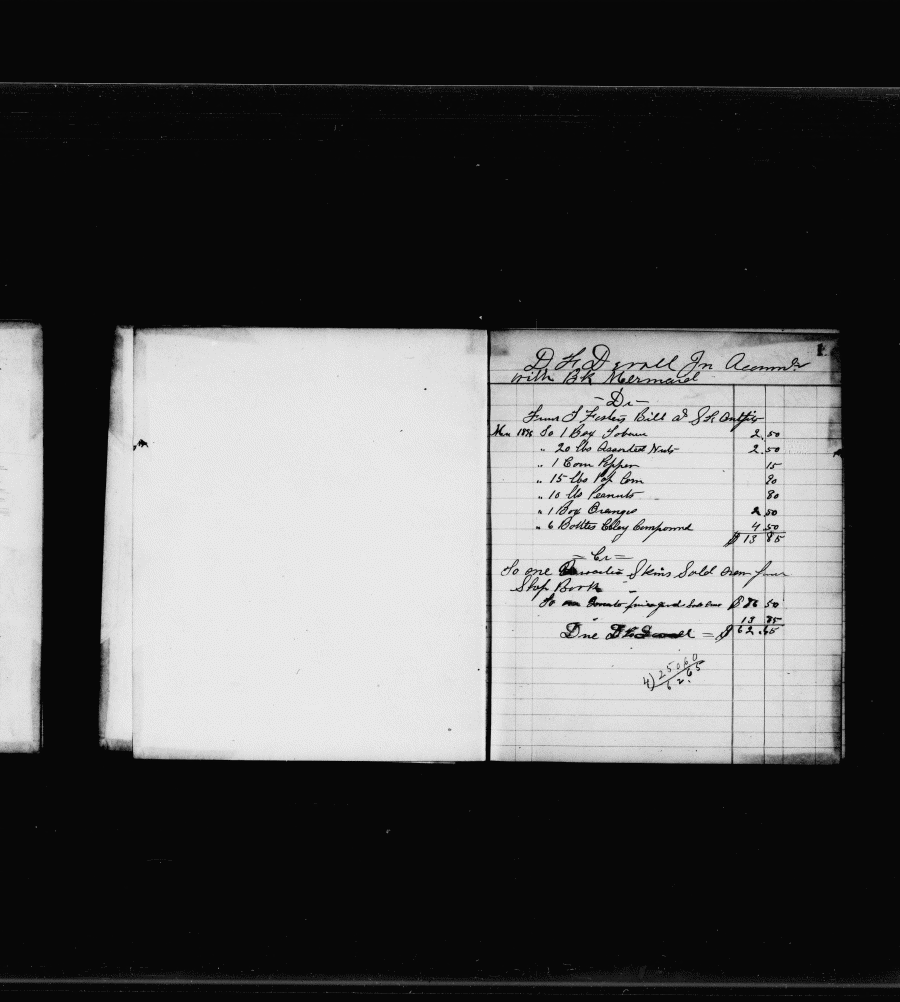 1
D. F. Devoll In Accound
with Bk Mermaid
- Dr -
From J Fosters Bill at S. F. Outfits
Nov 1896 To 1 Box Tobacco 2.50
" 20 lbs Assorted Nuts 2.50
" 1 Corn Popper 15
" 15 lbs Pop Corn 90
" 10 lbs Peanuts 80
" 1 Box Oranges 2 50
" 6 Bottles Compound 4 50
$ 13 85
= Cr =
To one Skins Sold from
Shop Book
To $ 76 50
13 85
Due = $ 62.65
4) 25060
62.65